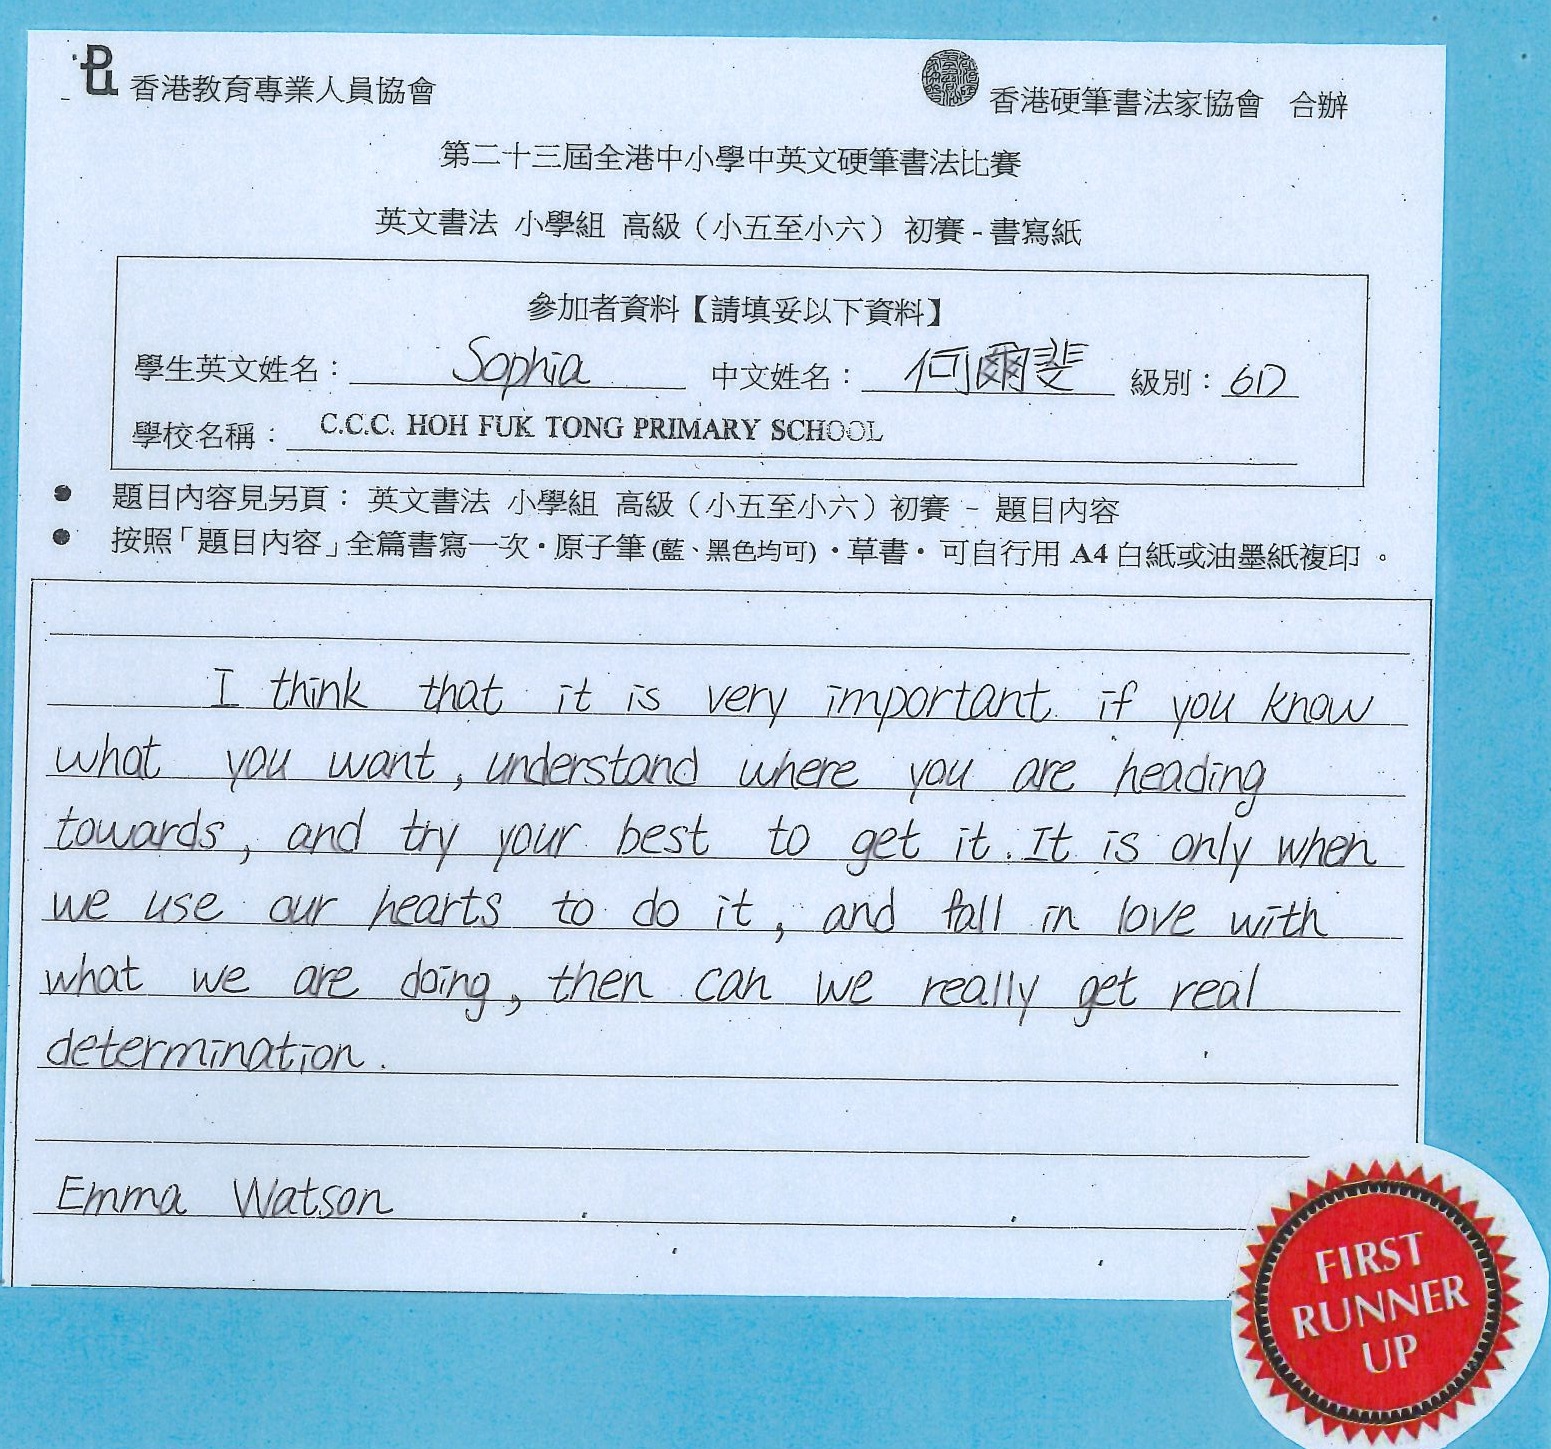 香港教育專業人員協會
香港硬筆書法家協會 合辦
第二十三屆全港中小學中英文硬筆書法比賽
英文書法 小學組 高級（小五至小六）初賽 - 書寫紙
參加者資料【請填妥以下資料】
學生英文姓名： Sophia 中文姓名： 何爾斐 級別： 6D
學校名稱： C.C.C. HOH FUK TONG PRIMARY SCHOOL
● 題目內容見另頁： 英文書法 小學組 高級（小五至小六）初賽 - 題目內容
● 按照「題目內容」全篇書寫一次，原子筆 (藍、黑色均可)，草書，可自行用 A4 白紙或油墨紙複印。
I think that it is very important if you know
what you want, understand where you are heading
towards, and try your best to get it. It is only when
we use our hearts to do it, and fall in love with
what we are doing, then can we really get real
determination.
Emma Watson
FIRST
RUNNER
UP